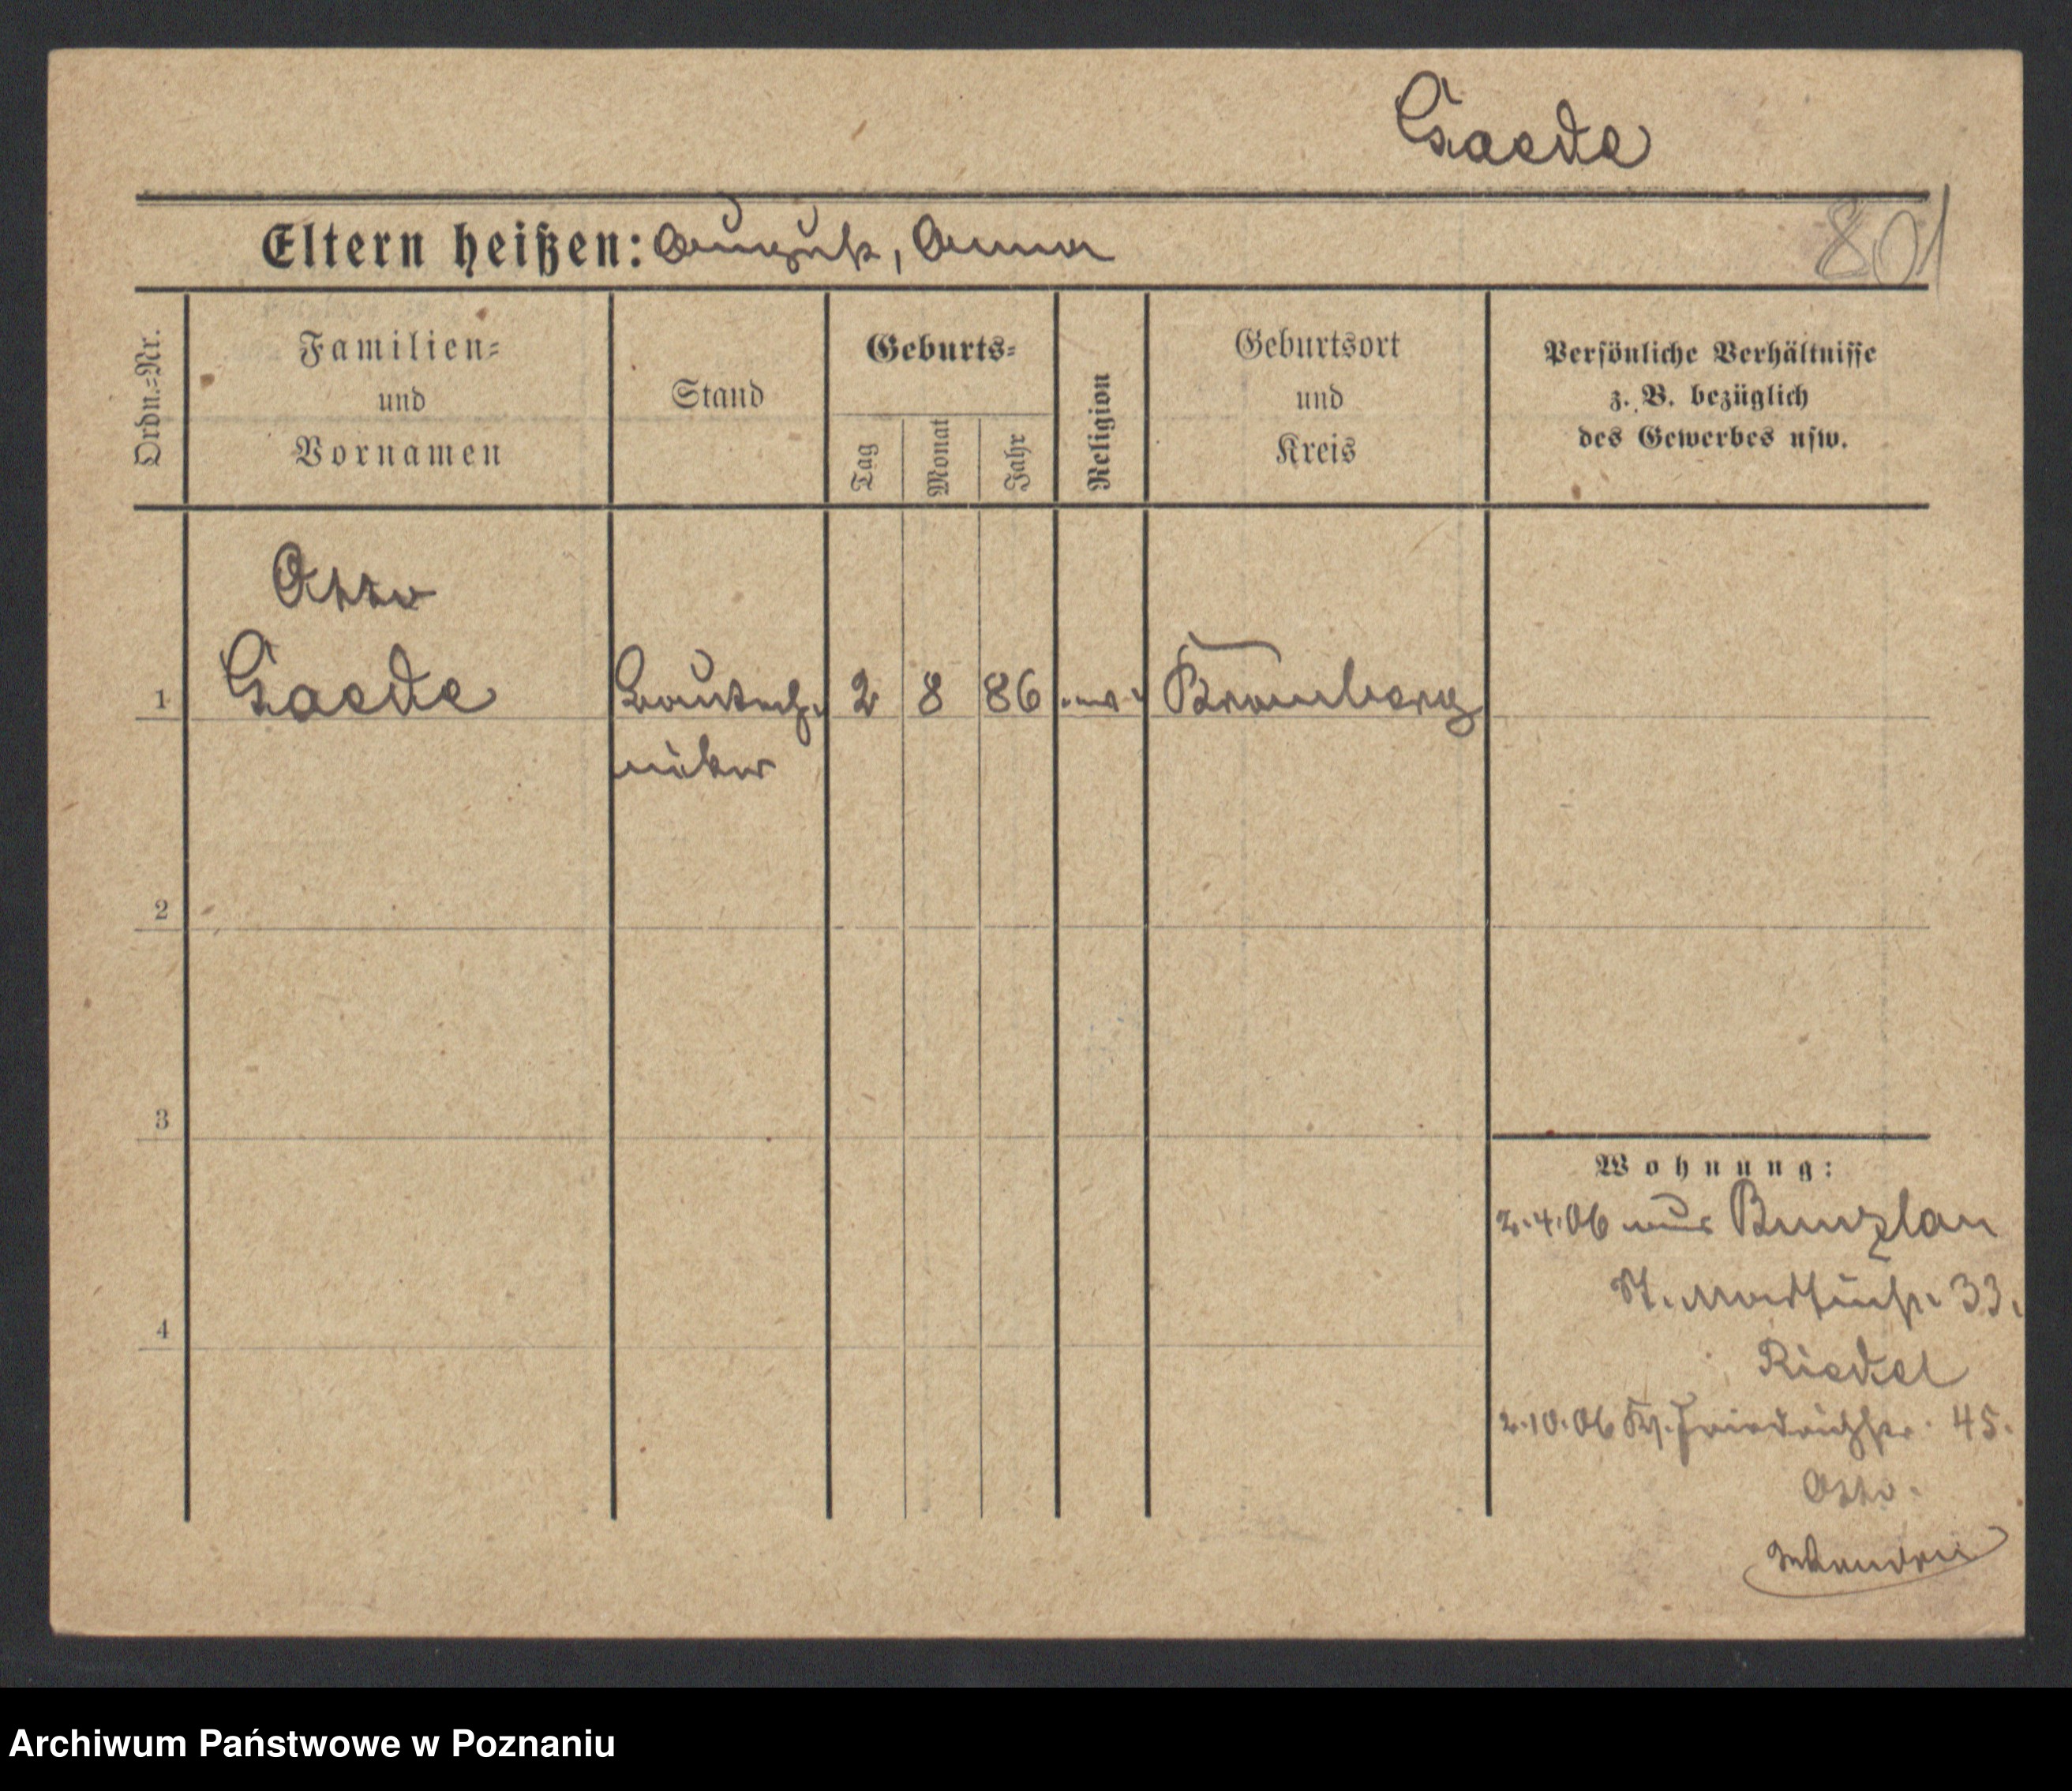 Gaede
Eltern heißen: August, Anna
801
Ordn.-Nr.
Familien-
und
Vornamen
Stand
Geburts-
Tag
Monat
Jahr
Religion
Geburtsort
und
Kreis
Persönliche Verhältnisse
z. B. bezüglich
des Gewerbes usw.
Otto
1 Gaede Bautech- 2 8 86 ev. Bromberg
niker
2
3
4
Wohnung:
2.4.06 aus Bunzlau
St. Martinstr. 33.
Riedel
2.10.06 Friedrichstr. 45.
Otto.
Archiwum Państwowe w Poznaniu